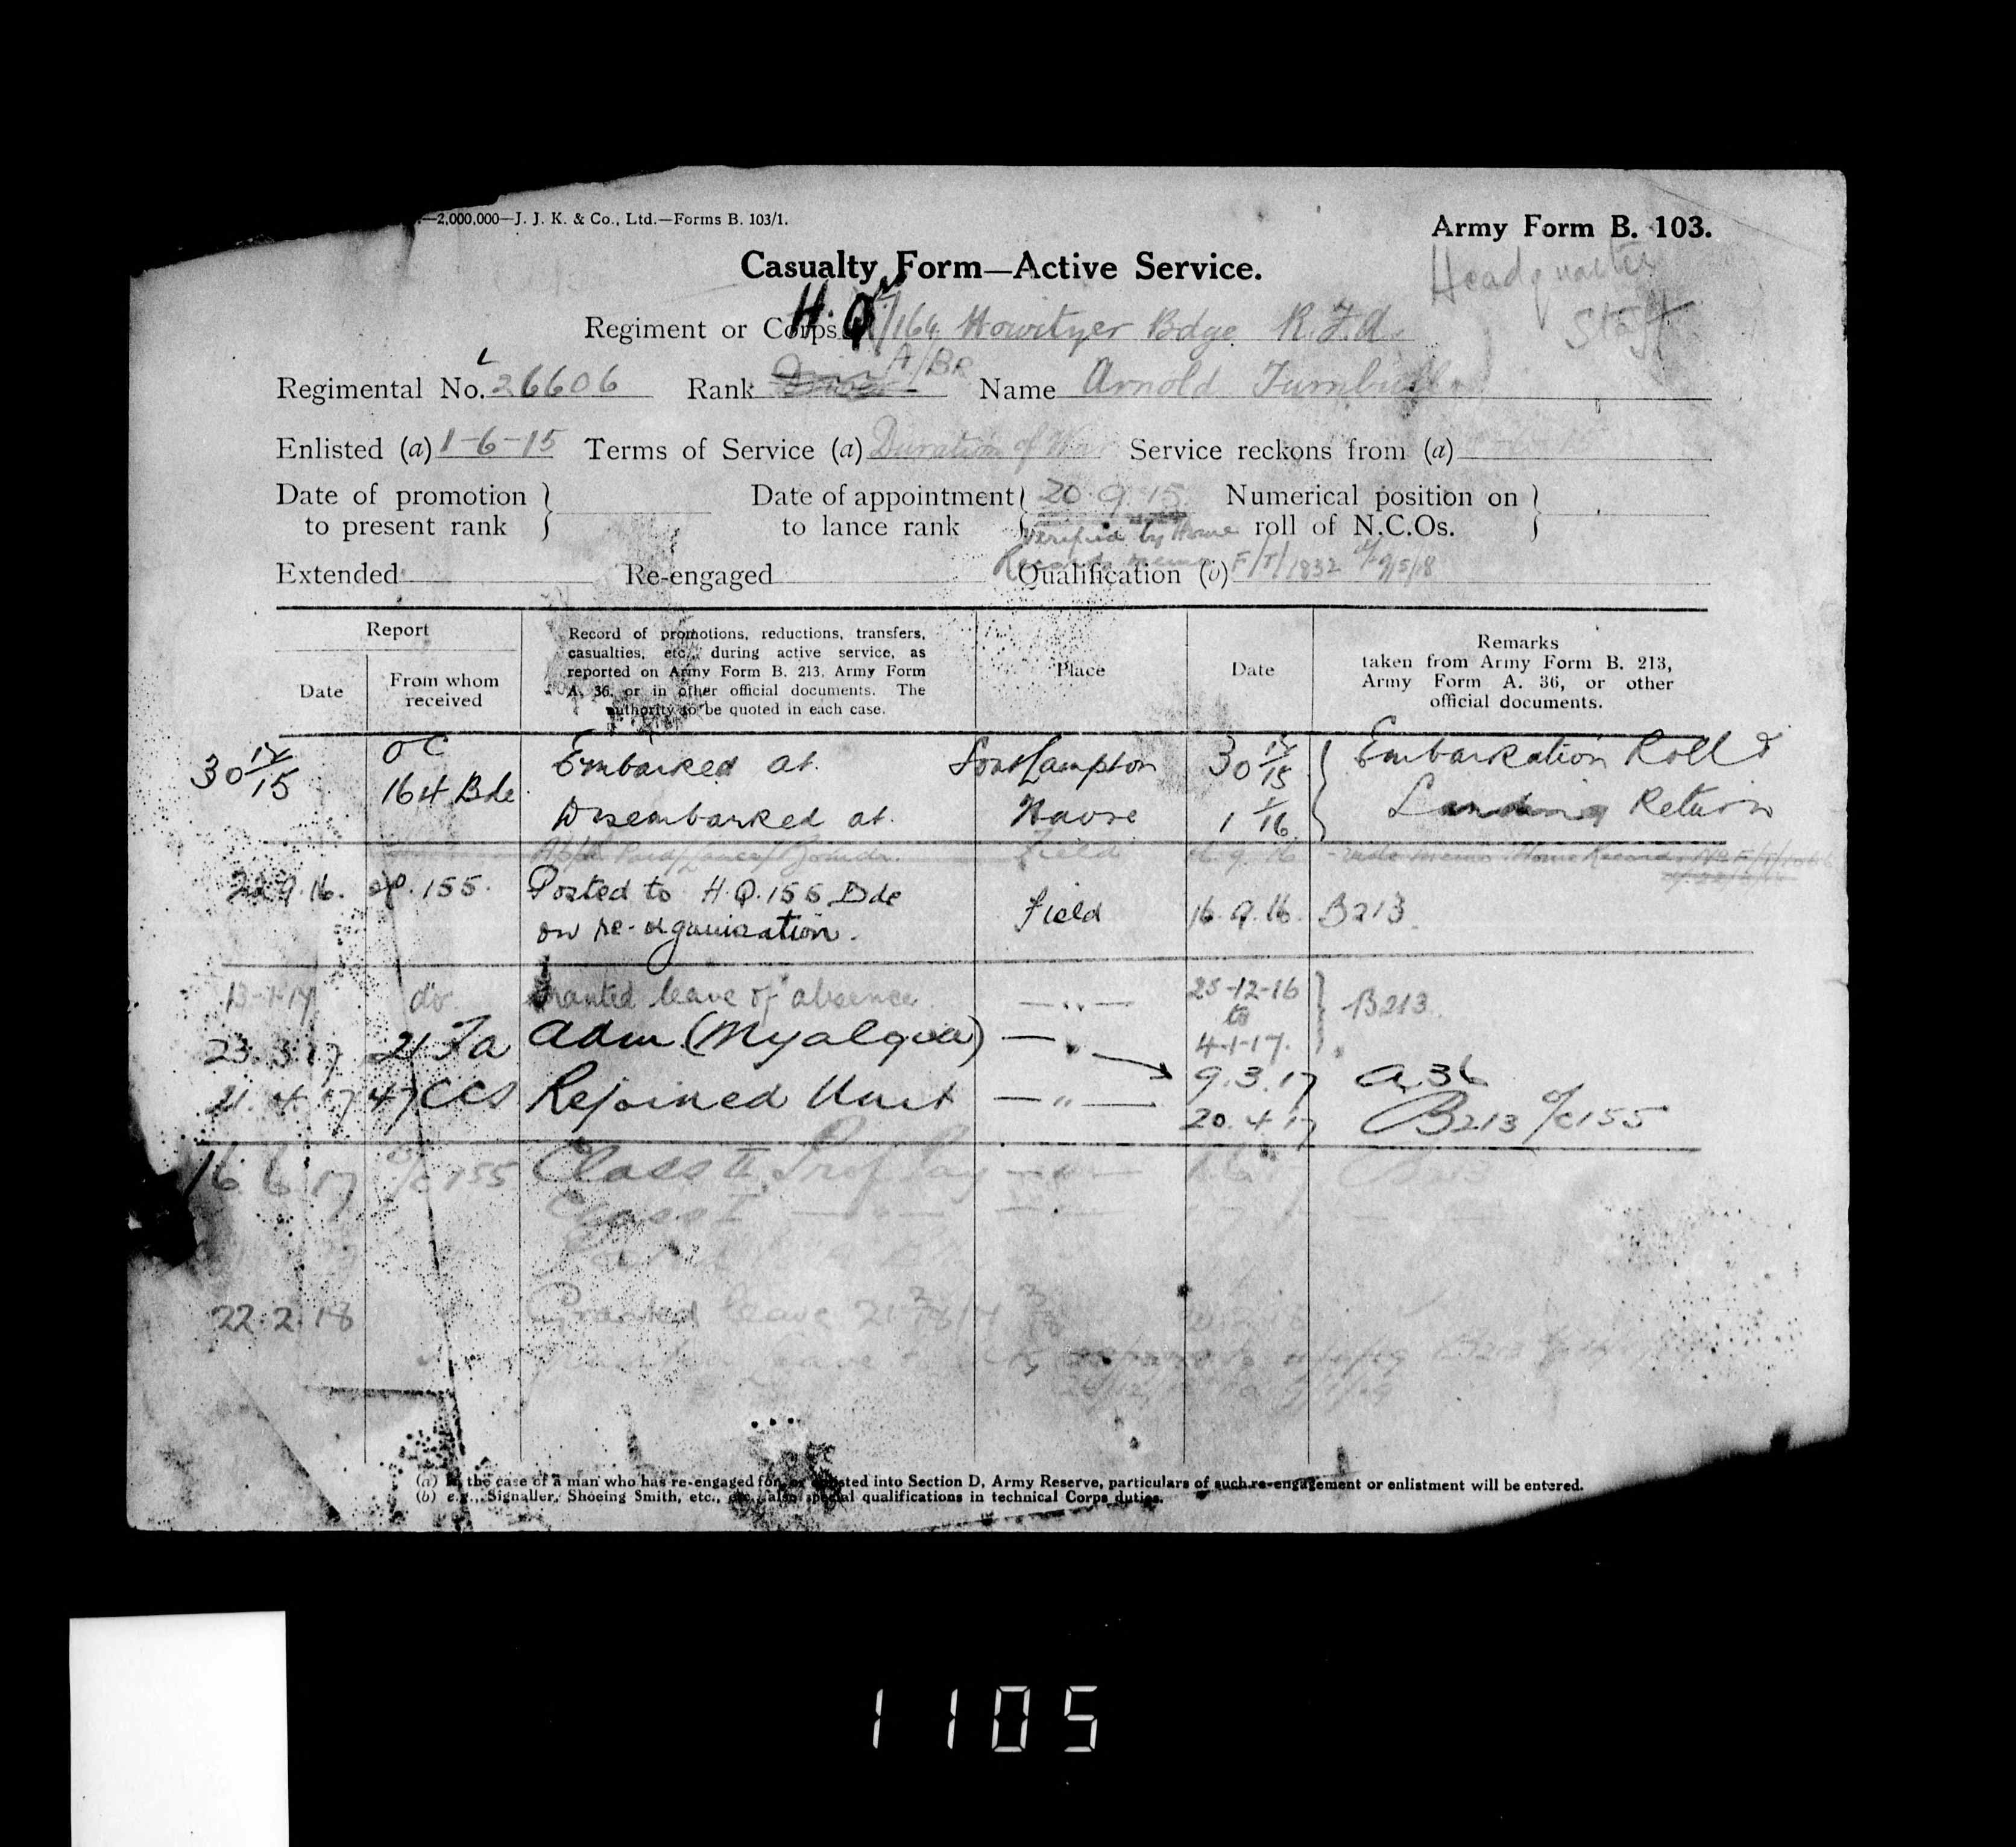 —2,000,000—J. J. K. & Co., Ltd.—Forms B. 103/1.
Army Form B. 103.
Headquarters
Staff
Casualty Form—Active Service.
Regiment or Corps H.Q. /164 Howitzer Bdge R.F.A.
Regimental No. L 26606 Rank Driver A/BR Name Arnold Turnbull
Enlisted (a) 1-6-15 Terms of Service (a) Duration of War Service reckons from (a) 1-6-15
Date of promotion to present rank Date of appointment to lance rank 20.9.15 Numerical position on roll of N.C.Os.
Verified by Home
Records memo F/T/1832 9/5/18
Extended Re-engaged Qualification (b)
Report
Date From whom received
Record of promotions, reductions, transfers, casualties, etc., during active service, as reported on Army Form B. 213, Army Form A. 36, or in other official documents. The authority to be quoted in each case.
Place
Date
Remarks taken from Army Form B. 213, Army Form A. 36, or other official documents.
30 12/15 OC 164 Bde Embarked at Southampton 30 12/15 Embarkation Roll &
Disembarked at Havre 1 1/16 Landing Return
Field
22.9.16. 155. Posted to H.Q. 155 Bde Field 16.9.16. B213.
on re-organization.
13-1-17 do Granted leave of absence —"— 25-12-16 to 4-1-17. B213.
23.3.17 21 Fa Adm (Myalgia) —"— 9.3.17 A36
21.4.17 47 CCS Rejoined Unit —"— 20.4.17 B213 o/c 155
16.6.17 o/c 155 Class II Prof Pay B213
Class I
22.2.18 Granted leave
leave
(a) In the case of a man who has re-engaged for, or enlisted into Section D, Army Reserve, particulars of such re-engagement or enlistment will be entered.
(b) e.g., Signaller, Shoeing Smith, etc., etc., also special qualifications in technical Corps duties.
1105